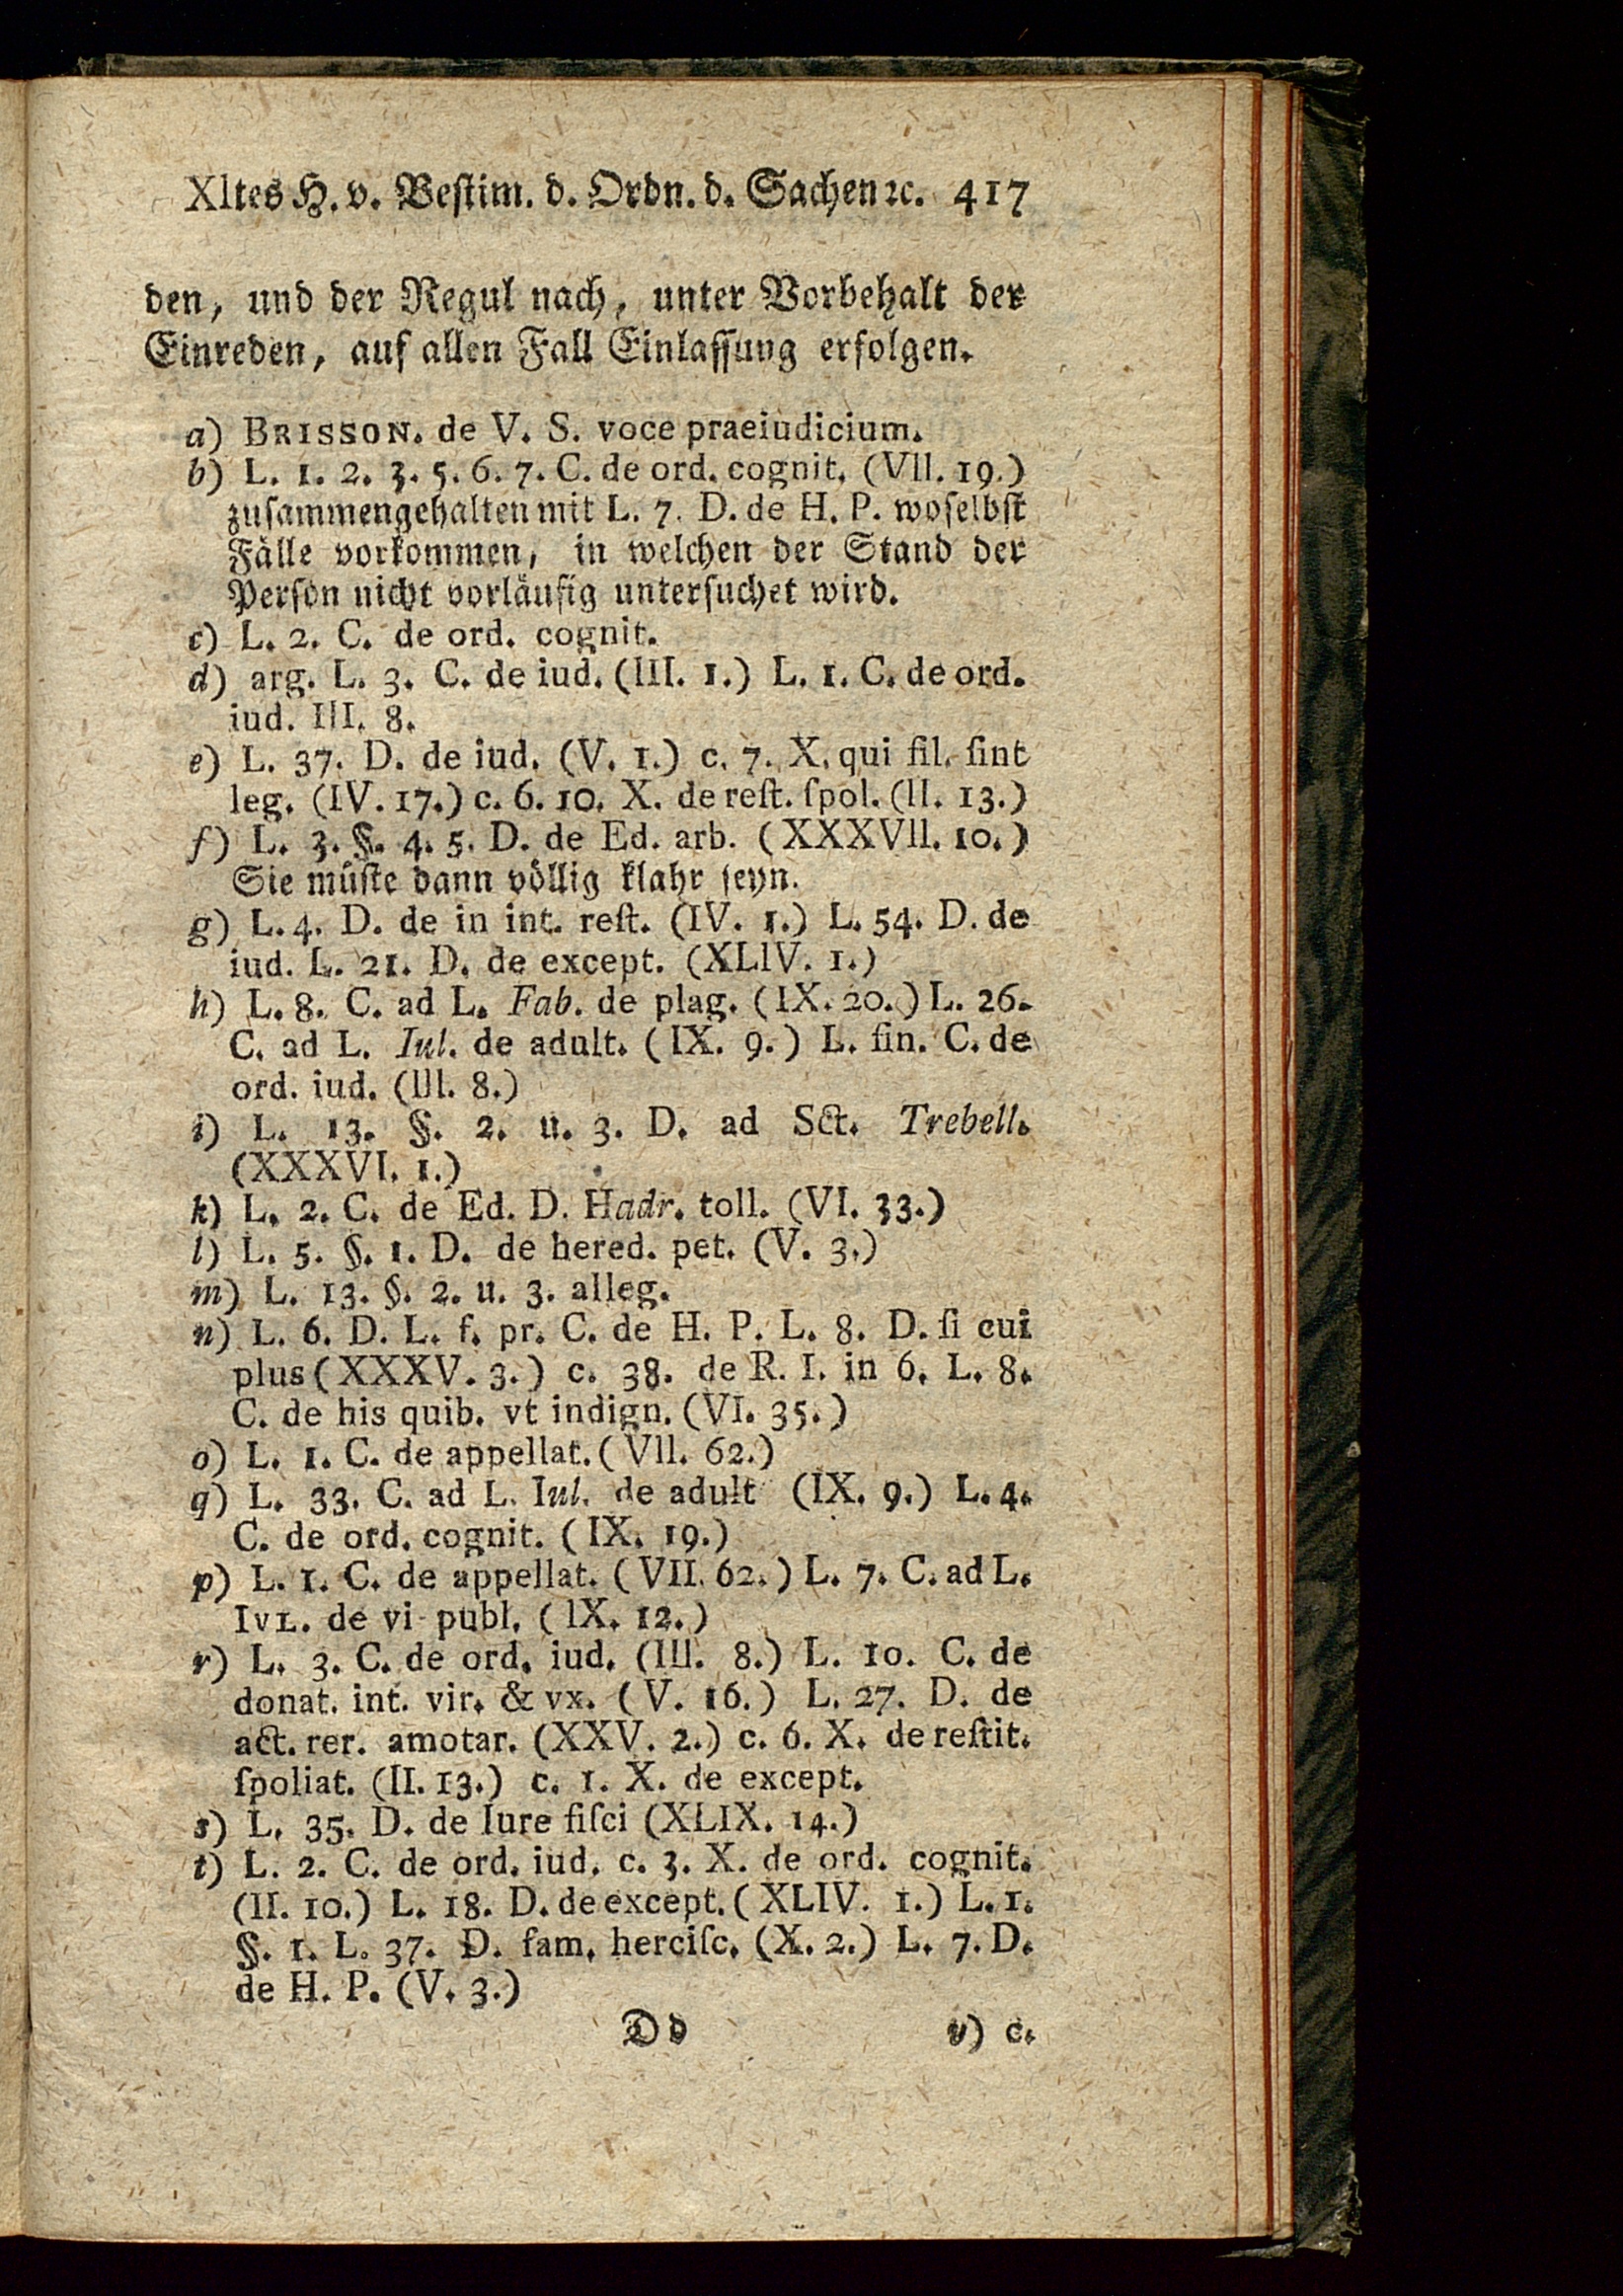 XItes H. v. Bestim. d. Ordn. d. Sachen ꝛc. 417
den, und der Regul nach, unter Vorbehalt der
Einreden, auf allen Fall Einlassung erfolgen.
a) BRISSON. de V. S. voce praeiudicium.
b) L. 1. 2. 3. 5. 6. 7. C. de ord. cognit. (VII. 19.)
zusammengehalten mit L. 7. D. de H. P. woselbst
Fälle vorkommen, in welchen der Stand der
Person nicht vorläufig untersuchet wird.
c) L. 2. C. de ord. cognit.
d) arg. L. 3. C. de iud. (III. 1.) L. 1. C. de ord.
iud. III. 8.
e) L. 37. D. de iud. (V. 1.) c. 7. X. qui fil. ſint
leg. (IV. 17.) c. 6. 10. X. de reſt. ſpol. (II. 13.)
f) L. 3. §. 4. 5. D. de Ed. arb. (XXXVII. 10.)
Sie müste dann völlig klahr seyn.
g) L. 4. D. de in int. reſt. (IV. 1.) L. 54. D. de
iud. L. 21. D. de except. (XLIV. 1.)
h) L. 8. C. ad L. Fab. de plag. (IX. 20.) L. 26.
C. ad L. Iul. de adult. (IX. 9.) L. fin. C. de
ord. iud. (III. 8.)
i) L. 13. §. 2. u. 3. D. ad Sct. Trebell.
(XXXVI. 1.)
k) L. 2. C. de Ed. D. Hadr. toll. (VI. 33.)
l) L. 5. §. 1. D. de hered. pet. (V. 3.)
m) L. 13. §. 2. u. 3. alleg.
n) L. 6. D. L. f. pr. C. de H. P. L. 8. D. ſi cui
plus (XXXV. 3.) c. 38. de R. I. in 6. L. 8.
C. de his quib. vt indign. (VI. 35.)
o) L. 1. C. de appellat. (VII. 62.)
q) L. 33. C. ad L. Iul. de adult (IX. 9.) L. 4.
C. de ord. cognit. (IX. 19.)
p) L. 1. C. de appellat. (VII. 62.) L. 7. C. ad L.
IVL. de vi publ. (IX. 12.)
r) L. 3. C. de ord. iud. (III. 8.) L. 10. C. de
donat. int. vir. & vx. (V. 16.) L. 27. D. de
act. rer. amotar. (XXV. 2.) c. 6. X. de reſtit.
ſpoliat. (II. 13.) c. 1. X. de except.
s) L. 35. D. de Iure fiſci (XLIX. 14.)
t) L. 2. C. de ord. iud. c. 3. X. de ord. cognit.
(II. 10.) L. 18. D. de except. (XLIV. 1.) L. 1.
§. 1. L. 37. D. fam. herciſc. (X. 2.) L. 7. D.
de H. P. (V. 3.)
Dd v) c.